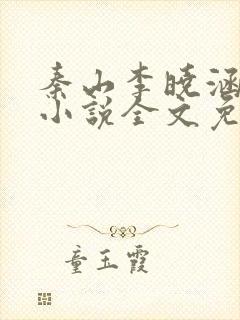 秦山李晓涵
小说全文免
童玉霞